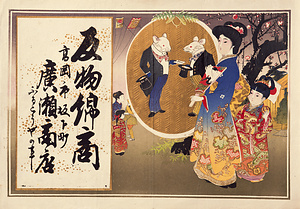 反物綿商
高岡市坂下町
廣瀬商店